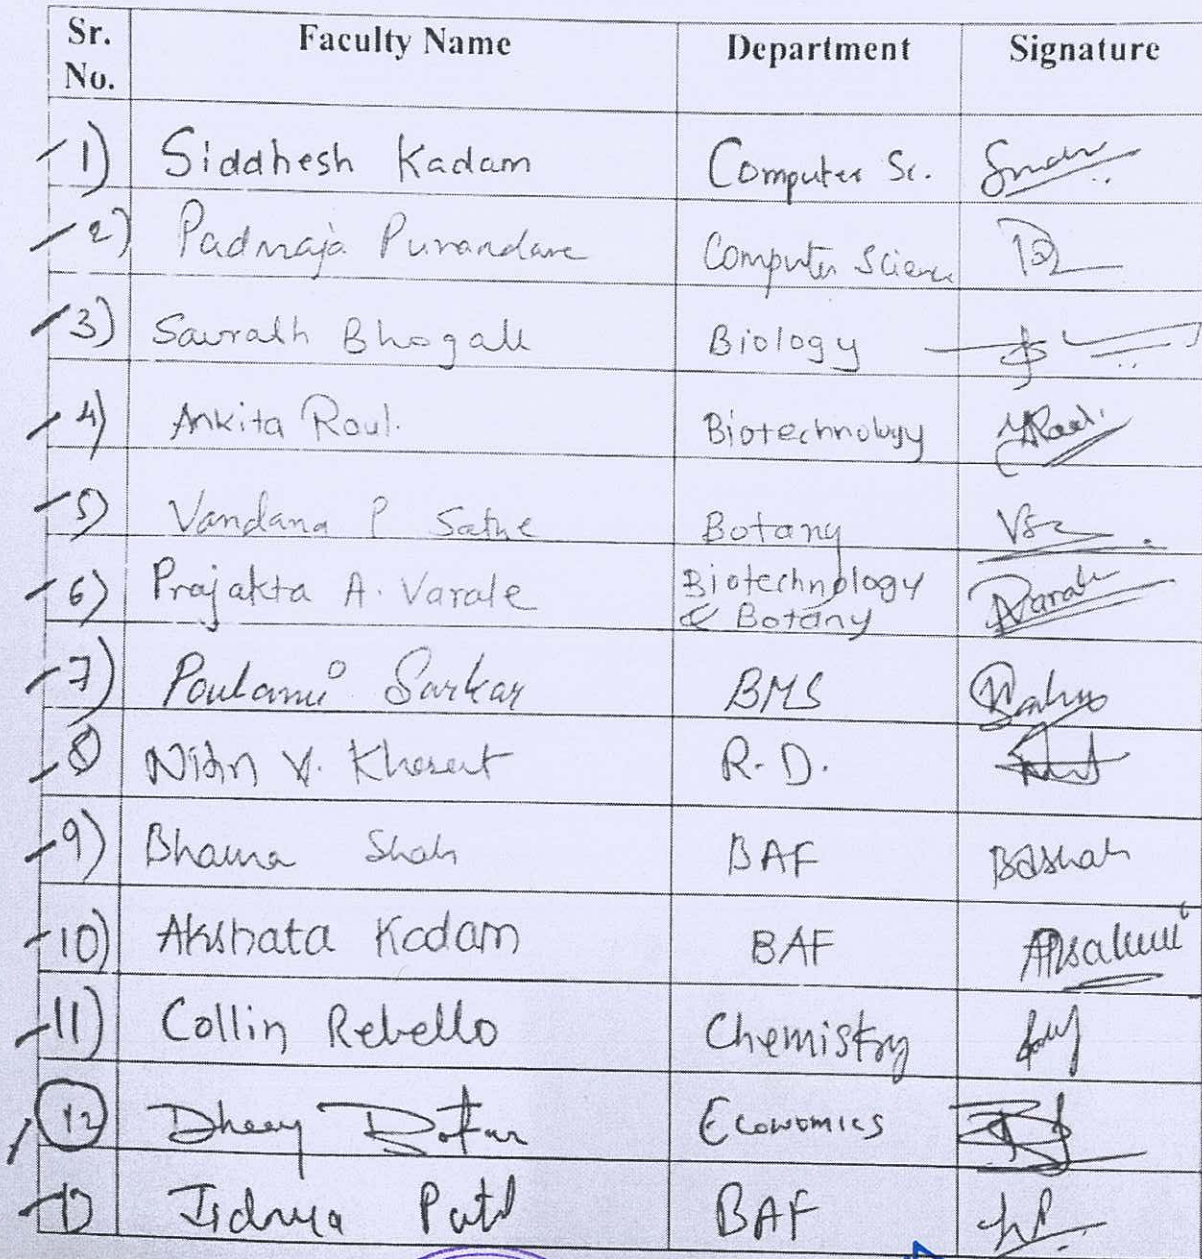 Sr. No. Faculty Name Department Signature
1) Siddhesh Kadam Computer Sc.
2) Padmaja Purandare Computer Science
3) Saurabh Bhogale Biology
4) Ankita Roul. Biotechnology
5) Vandana P Sathe Botany
6) Prajakta A. Varale Biotechnology
& Botany
7) Poulami Sarkar BMS
8) Nitin V. Kharat R.D.
9) Bhavna Shah BAF BDShah
10) Akshata Kadam BAF
11) Collin Rebello Chemistry
12 Economics
13 Patil BAF